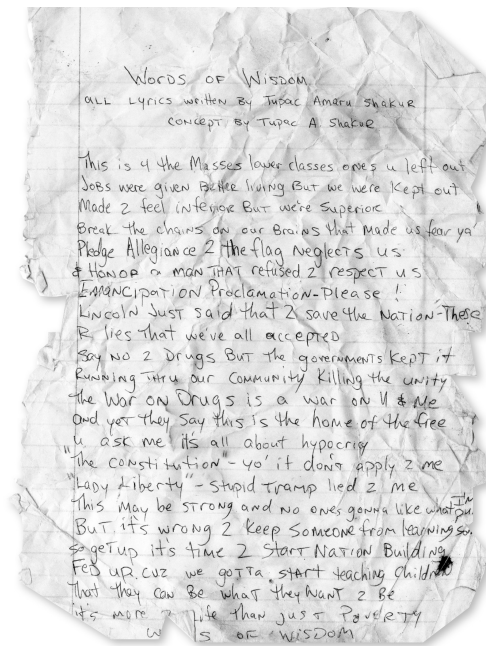 WORDS OF WISDOM
ALL LYRICS WRITTEN BY TUPAC AMARU SHAKUR
CONCEPT BY TUPAC A. SHAKUR
This is 4 the Masses lower classes ones u left out
JOBS were given Better living But we were Kept out
Made 2 feel inferior But we're Superior
Break the chains on our Brains that Made us fear ya
Pledge Allegiance 2 the flag neglects us
& HONOR a MAN THAT refused 2 respect us
EMANCIPATION Proclamation-Please!
LINCOLN JUST Said that 2 save the NATION-These
R lies That we've all accepted
Say NO 2 Drugs BUT The governments KepT it
RUNNING THRU our COMMUNITY Killing the unity
the War on Drugs is a war on U & Me
and yet they Say this is the home of the free
u ask me it's all about hypocrisy
"The CONSTITUTION" - yo' it don't apply 2 me
"LADY Liberty" - STUPID TRAMP lied 2 me
This may be STRONG and NO ones gonna like what I'm
BUT it's wrong 2 Keep Someone from learning
so get up it's time 2 START NATION Building
FED UP CUZ we gotta start teaching children
That they can Be what They WANT 2 Be
it's more 2 life than just Poverty
OF WISDOM